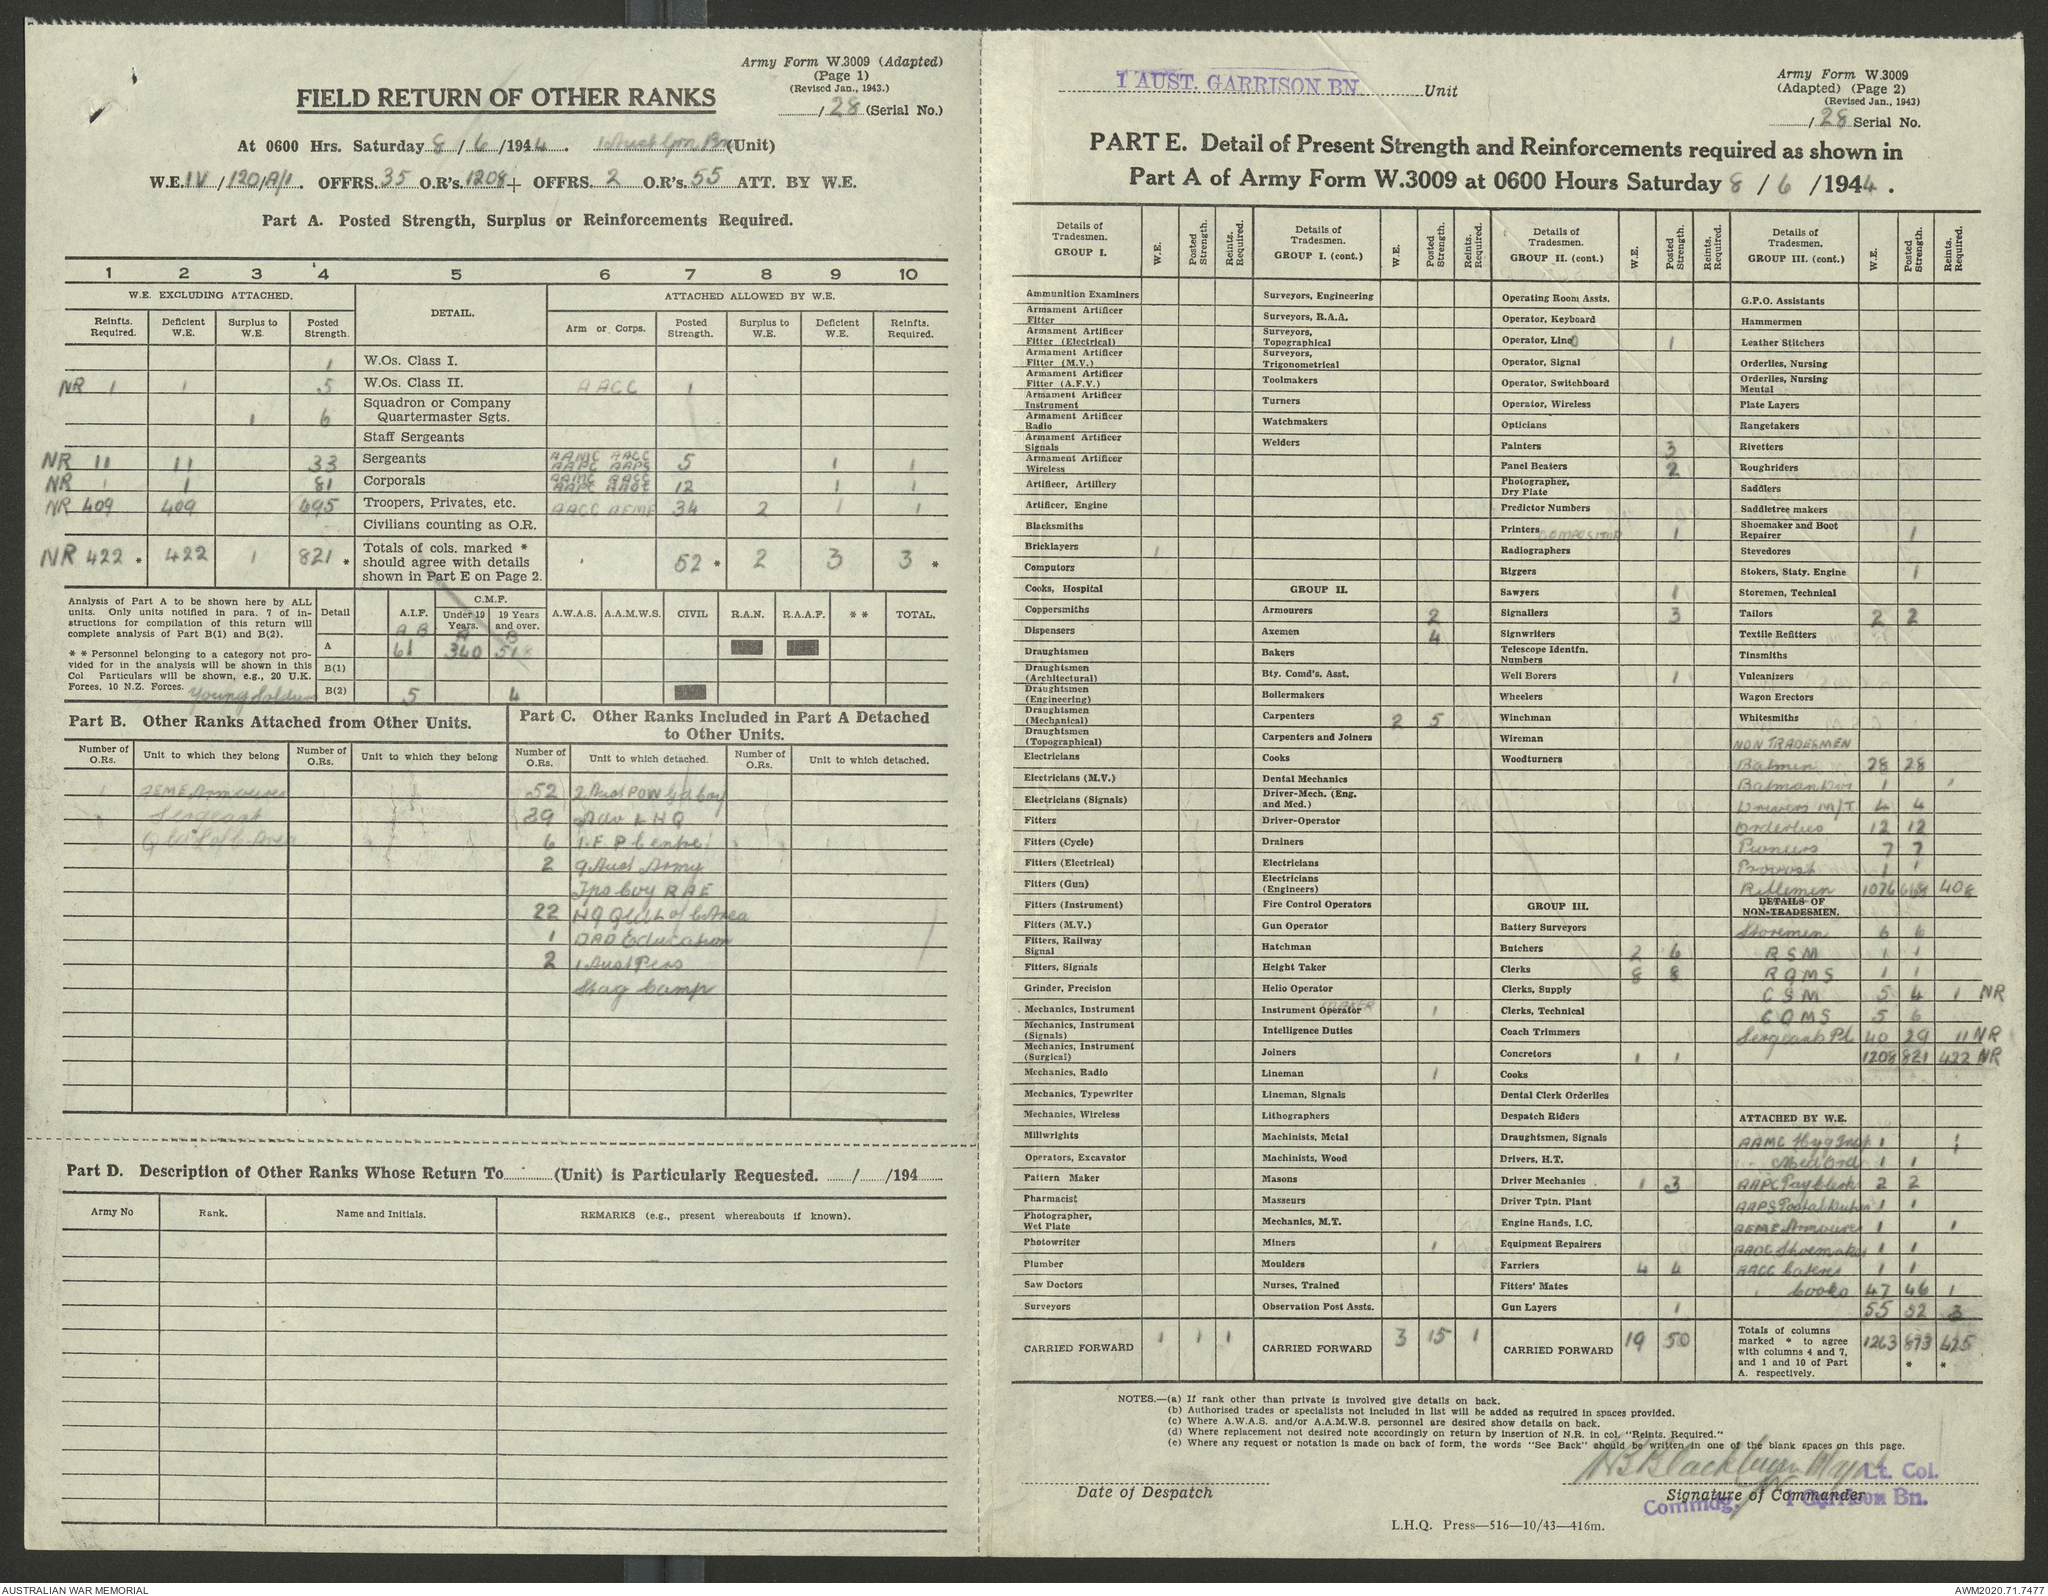 Army Form W.3009 (Adapted)
(Page 1)
(Revised Jan., 1943.)
FIELD RETURN OF OTHER RANKS
/ 28 (Serial No.)
At 0600 Hrs. Saturday 8 / 6 /1944. 1 Aust Grn Bn (Unit)
W.E. IV / 120/A/1. OFFRS. 35 O.R's. 1208 + OFFRS. 2 O.R's. 55 ATT. BY W.E.
Part A. Posted Strength, Surplus or Reinforcements Required.
1 2 3 4 5 6 7 8 9 10
W.E. EXCLUDING ATTACHED. DETAIL. ATTACHED ALLOWED BY W.E.
Reinfts. Required. Deficient W.E. Surplus to W.E. Posted Strength. Arm or Corps. Posted Strength. Surplus to W.E. Deficient W.E. Reinfts. Required.
1 W.Os. Class I.
NR 1 1 5 W.Os. Class II. AACC 1
Squadron or Company
1 6 Quartermaster Sgts.
Staff Sergeants
NR 11 11 33 Sergeants AAMC AACC AAPC AAPS 5 1 1
NR 1 1 81 Corporals AAMC AACC AAPC AAOC 12 1 1
NR 409 409 695 Troopers, Privates, etc. AACC AEME 34 2 1 1
Civilians counting as O.R.
NR 422 * 422 1 821 * Totals of cols. marked * should agree with details shown in Part E on Page 2. 52 * 2 3 3 *
Analysis of Part A to be shown here by ALL units. Only units notified in para. 7 of instructions for compilation of this return will complete analysis of Part B(1) and B(2).
* * Personnel belonging to a category not provided for in the analysis will be shown in this Col. Particulars will be shown, e.g., 20 U.K. Forces, 10 N.Z. Forces. Young Soldiers
Detail A.I.F. C.M.F. Under 19 Years. 19 Years and over. A.W.A.S. A.A.M.W.S. CIVIL R.A.N. R.A.A.F. * * TOTAL.
A B A B
A 61 340 518
B(1)
B(2) 5 4
Part B. Other Ranks Attached from Other Units.
Number of O.Rs. Unit to which they belong Number of O.Rs. Unit to which they belong
1 AEME Armourer
Sergeant
Part C. Other Ranks Included in Part A Detached to Other Units.
Number of O.Rs. Unit to which detached. Number of O.Rs. Unit to which detached.
52 2 Aust POW Gd Coy
39 Adv LHQ
6 1.F.P Centre
2 9 Aust Army
Tps Coy RAE
22 HQ Q'ld L of C Area
1 DAD Education
2 1 Aust Pers
Stag Camp
Part D. Description of Other Ranks Whose Return To (Unit) is Particularly Requested. / /194
Army No Rank. Name and Initials. REMARKS (e.g., present whereabouts if known).
1 AUST. GARRISON BN Unit
Army Form W.3009
(Adapted) (Page 2)
(Revised Jan., 1943)
/ 28 Serial No.
PART E. Detail of Present Strength and Reinforcements required as shown in
Part A of Army Form W.3009 at 0600 Hours Saturday 8 / 6 /1944.
Details of Tradesmen. GROUP I. W.E. Posted Strength. Reints. Required.
Ammunition Examiners
Armament Artificer Fitter
Armament Artificer Fitter (Electrical)
Armament Artificer Fitter (M.V.)
Armament Artificer Fitter (A.F.V.)
Armament Artificer Instrument
Armament Artificer Radio
Armament Artificer Signals
Armament Artificer Wireless
Artificer, Artillery
Artificer, Engine
Blacksmiths
Bricklayers 1
Computors
Cooks, Hospital
Coppersmiths
Dispensers
Draughtsmen
Draughtsmen (Architectural)
Draughtsmen (Engineering)
Draughtsmen (Mechanical)
Draughtsmen (Topographical)
Electricians
Electricians (M.V.)
Electricians (Signals)
Fitters
Fitters (Cycle)
Fitters (Electrical)
Fitters (Gun)
Fitters (Instrument)
Fitters (M.V.)
Fitters, Railway Signal
Fitters, Signals
Grinder, Precision
Mechanics, Instrument
Mechanics, Instrument (Signals)
Mechanics, Instrument (Surgical)
Mechanics, Radio
Mechanics, Typewriter
Mechanics, Wireless
Millwrights
Operators, Excavator
Pattern Maker
Pharmacist
Photographer, Wet Plate
Photowriter
Plumber
Saw Doctors
Surveyors
CARRIED FORWARD 1 1 1
Details of Tradesmen. GROUP I. (cont.) W.E. Posted Strength. Reints. Required.
Surveyors, Engineering
Surveyors, R.A.A.
Surveyors, Topographical
Surveyors, Trigonometrical
Toolmakers
Turners
Watchmakers
Welders
GROUP II.
Armourers 2
Axemen 4
Bakers
Bty. Comd's. Asst.
Boilermakers
Carpenters 2 5
Carpenters and Joiners
Cooks
Dental Mechanics
Driver-Mech. (Eng. and Med.)
Driver-Operator
Drainers
Electricians
Electricians (Engineers)
Fire Control Operators
Gun Operator
Hatchman
Height Taker
Helio Operator
Instrument Operator 1
Intelligence Duties
Joiners
Lineman 1
Lineman, Signals
Lithographers
Machinists, Metal
Machinists, Wood
Masons
Masseurs
Mechanics, M.T.
Miners 1
Moulders
Nurses, Trained
Observation Post Assts.
CARRIED FORWARD 3 15 1
Details of Tradesmen. GROUP II. (cont.) W.E. Posted Strength. Reints. Required.
Operating Room Assts.
Operator, Keyboard
Operator, Lino 1
Operator, Signal
Operator, Switchboard
Operator, Wireless
Opticians
Painters 3
Panel Beaters 2
Photographer, Dry Plate
Predictor Numbers
Printers COMPOSITOR 1
Radiographers
Riggers
Sawyers 1
Signallers 3
Signwriters
Telescope Identfn. Numbers
Well Borers 1
Wheelers
Winchman
Wireman
Woodturners
GROUP III.
Battery Surveyors
Butchers 2 6
Clerks 8 8
Clerks, Supply
Clerks, Technical
Coach Trimmers
Concretors 1 1
Cooks
Dental Clerk Orderlies
Despatch Riders
Draughtsmen, Signals
Drivers, H.T.
Driver Mechanics 1 3
Driver Tptn. Plant
Engine Hands, I.C.
Equipment Repairers
Farriers 4 4
Fitters' Mates
Gun Layers 1
CARRIED FORWARD 19 50
Details of Tradesmen. GROUP III. (cont.) W.E. Posted Strength. Reints. Required.
G.P.O. Assistants
Hammermen
Leather Stitchers
Orderlies, Nursing
Orderlies, Nursing Mental
Plate Layers
Rangetakers
Rivetters
Roughriders
Saddlers
Saddletree makers
Shoemaker and Boot Repairer 1
Stevedores
Stokers, Staty. Engine 1
Storemen, Technical
Tailors 2 2
Textile Refitters
Tinsmiths
Vulcanizers
Wagon Erectors
Whitesmiths
NON TRADESMEN
Batmen 28 28
Batman Dvr 1 1
Drivers M/T 4 4
Orderlies 12 12
Pioneers 7 7
Provost 1 1
Riflemen 1076 668 408
DETAILS OF NON-TRADESMEN.
Storemen 6 6
RSM 1 1
RQMS 1 1
CSM 5 4 1 NR
CQMS 5 6
Sergeants Pl 40 29 11 NR
1208 821 422 NR
ATTACHED BY W.E.
AAMC Hyg Insp 1 1
Med Ord 1 1
AAPC Pay Clerk 2 2
AAPS Postal 1 1
AEME Armourer 1 1
AAOC Shoemaker 1 1
AACC Caterer 1 1
Cooks 47 46 1
55 52 3
Totals of columns marked * to agree with columns 4 and 7, and 1 and 10 of Part A. respectively. 1263 873 * 425 *
NOTES.—(a) If rank other than private is involved give details on back.
(b) Authorised trades or specialists not included in list will be added as required in spaces provided.
(c) Where A.W.A.S. and/or A.A.M.W.S. personnel are desired show details on back.
(d) Where replacement not desired note accordingly on return by insertion of N.R. in col. "Reints. Required."
(e) Where any request or notation is made on back of form, the words "See Back" should be written in one of the blank spaces on this page.
Blackburn Major
Lt. Col.
Date of Despatch
Signature of Commander
Commdg. 1 Garrison Bn.
L.H.Q. Press—516—10/43—416m.
AUSTRALIAN WAR MEMORIAL
AWM2020.71.7477